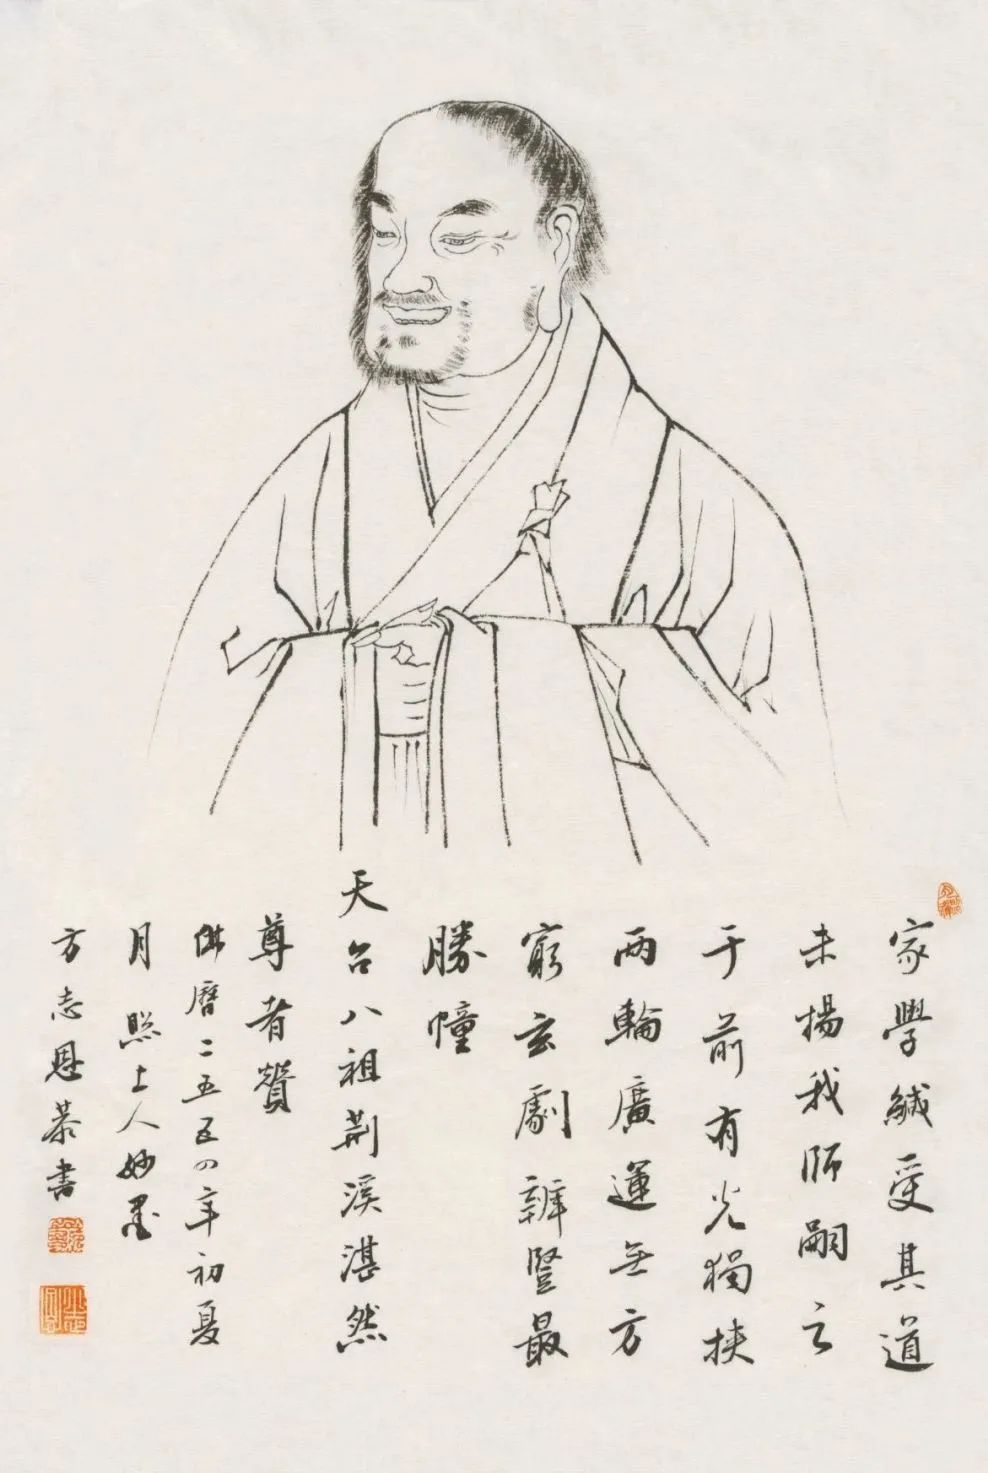 家學緘受其道
未揚我師嗣之
于前有光獨挾
兩輪廣運無方
窮玄劇辯豎最
勝幢
天台八祖荆溪湛然
尊者贊
佛曆二五五四年初夏
月照上人妙墨
方志恩恭書